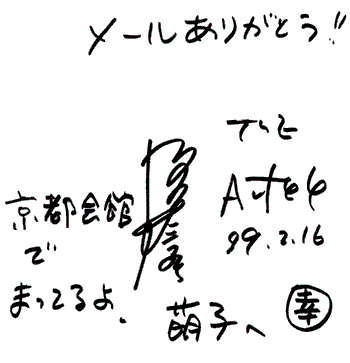 メールありがとう!!
京都会館
で
まってるよ.
THE
Alfee
99.2.16
萌子へ
幸